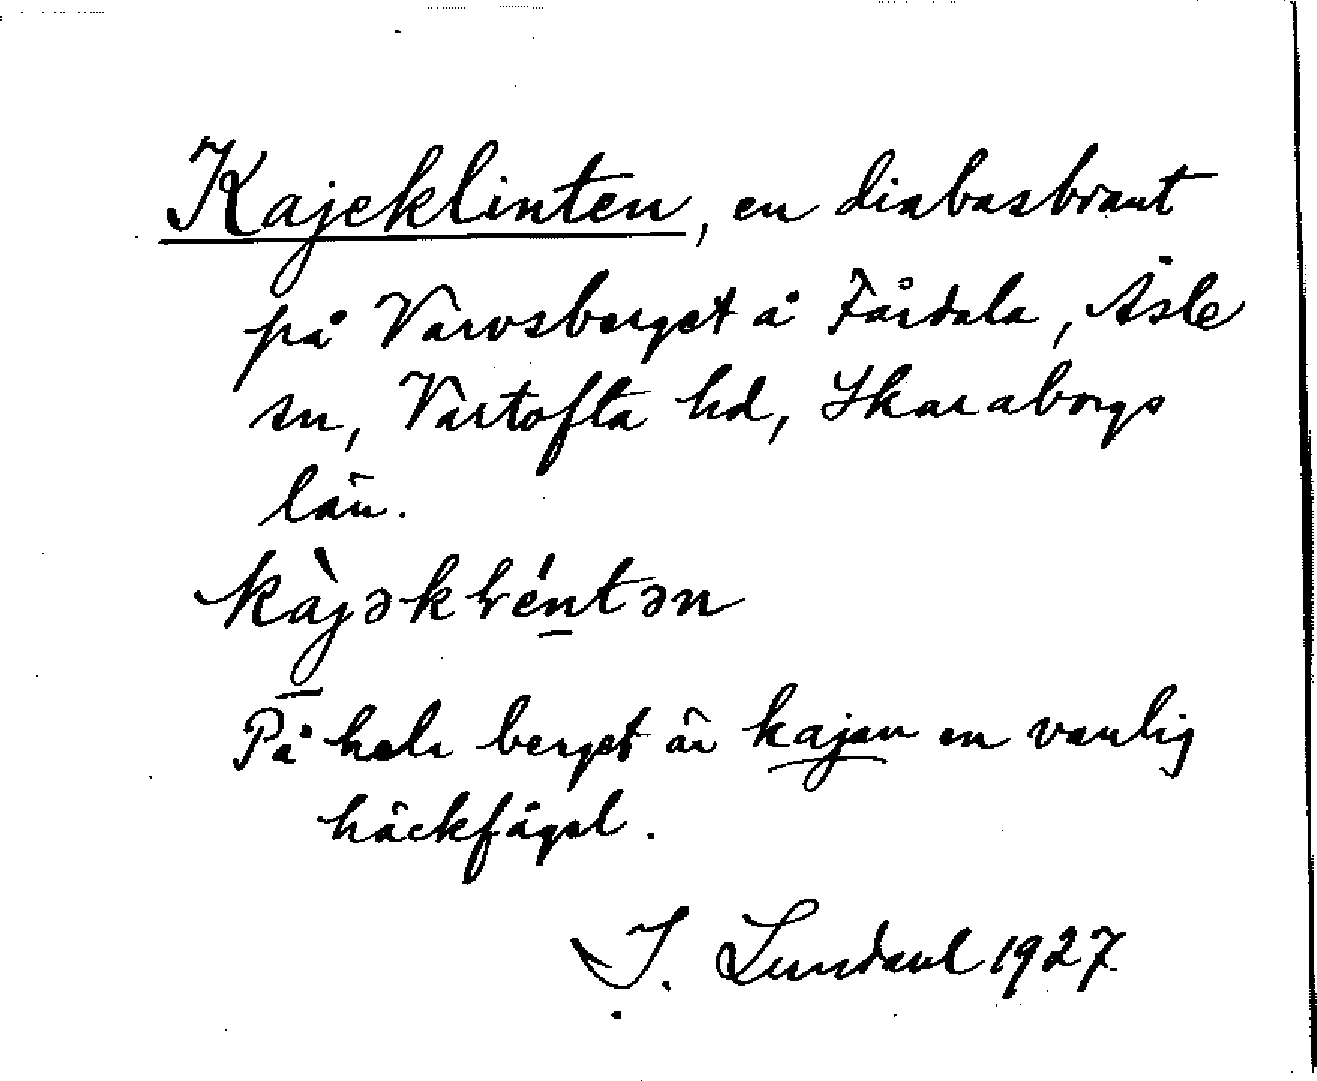 Kajeklinten, en diabasbrant
på Varvsberget å Fårdala, Åsle
sn, Vartofta hd, Skaraborgs
län.
kàjəklｴéntən
På hela berget är kajan en vanlig
häckfågel.
I. Lundahl 1927